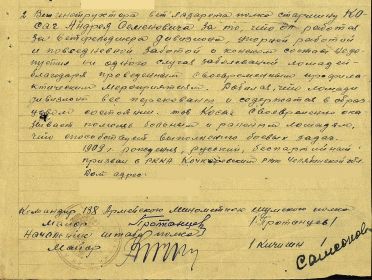 2 Вет инструктора вет лазарета полка старшину КО-
САЧ Андрея Семеновича за то, что он работая
за ветфельдшера довольно упорной работой
и повседневной заботой о конном составе недо-
пустил ни одного случая заболеваний лошадей
благодаря проведенным своевременным профила-
ктическим мероприятиям. Добился, что лошади
дивизиона все перекованы и содержатся в образ-
цовом состоянии. тов Косач своевременно ока-
зывает помощь больным и раненым лошадям,
что способствует выполнению боевых задач.
1909 г рождения, русский, беспартийный
призван в РККА РВК Челябинской обл.
Дом адрес:
Командир 138 Армейского Минометного полка
Майор /Протанцев/
Начальник штаба полка
Майор /Кичигин/
Самсонов